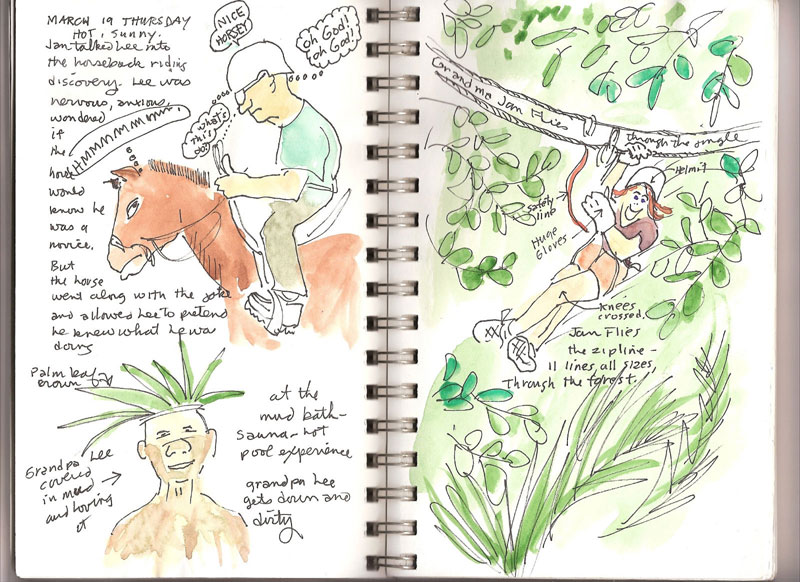 MARCH 19 THURSDAY
HOT, SUNNY.
Jan talked Lee into
the horseback riding
discovery. Lee was
nervous, anxious,
wondered
if
the
horse
would
know he
was a
novice.
But
the horse
went along with the joke
and allowed Lee to pretend
he knew what he was
doing
HMMMMMMMM.
NICE
HORSEY
oh God!
oh God!
what's
this
Palm leaf
crown
Grandpa Lee
covered
in mud
and loving
it
at the
mud bath-
sauna-hot
pool experience
grandpa Lee
gets down and
dirty
Grandma Jan Flies
through the jungle
Helmit
safety
line
Huge
Gloves
Knees
crossed,
Jan Flies
the zipline -
11 lines, all sizes,
Through the forest.